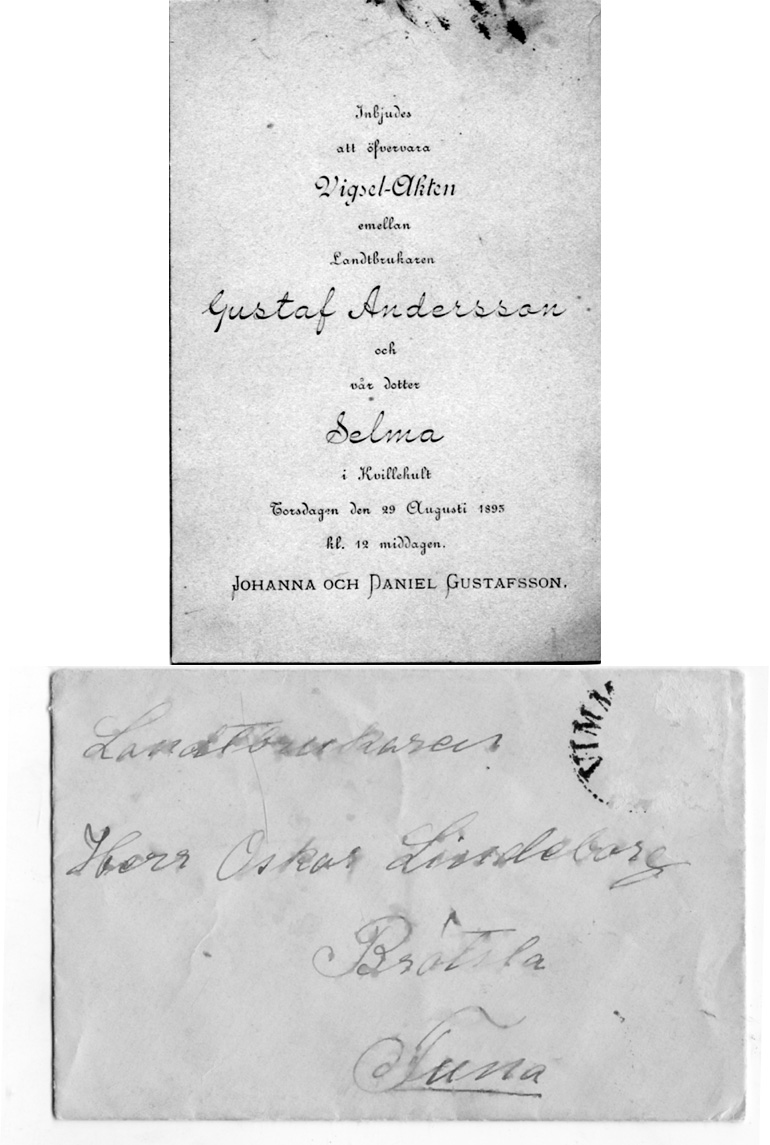 Inbjudes
att öfvervara
Vigsel-Akten
emellan
Landtbrukaren
Gustaf Andersson
och
vår dotter
Selma
i Kvillehult
Torsdagen den 29 Augusti 1895
kl. 12 middagen.
JOHANNA OCH DANIEL GUSTAFSSON.
Landtbrukaren
Herr Oskar Lindeborg
Tuna